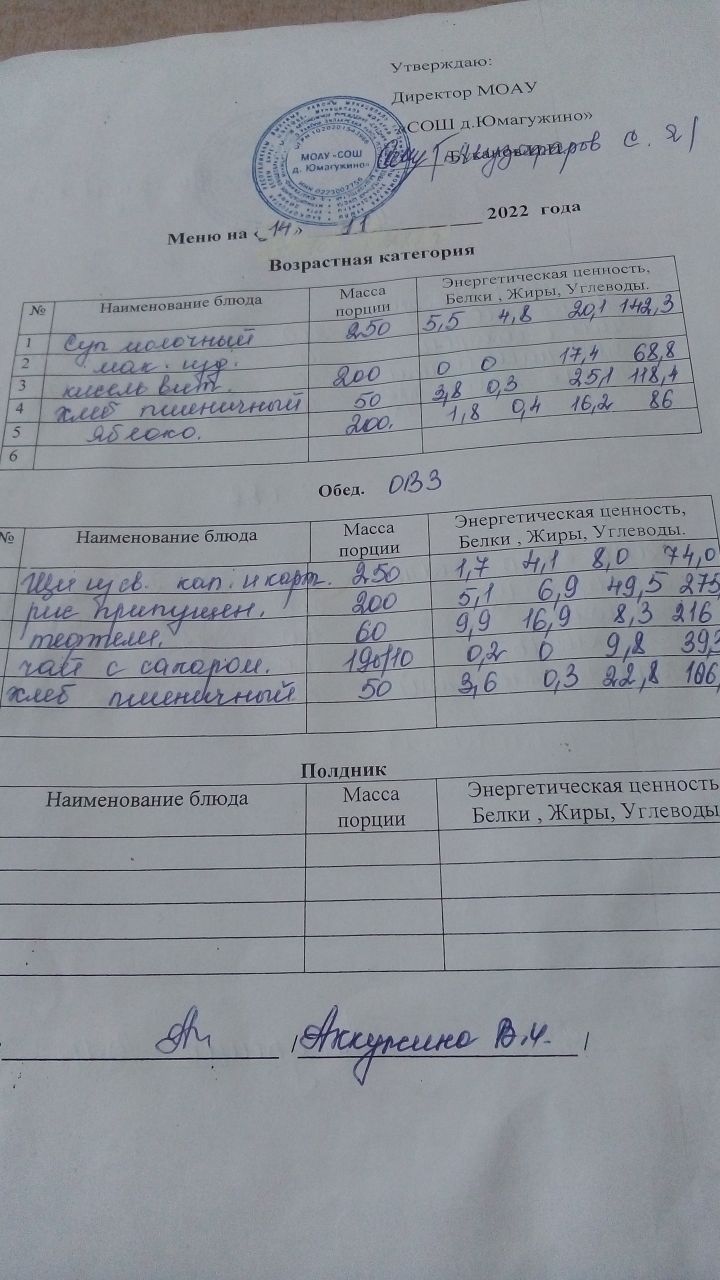 Утверждаю:
Директор МОАУ
«СОШ д.Юмагужино»
С. Я /
МОАУ «СОШ
д. Юмагужино»
ИНН 0223002756
Меню на «14» 11 2022 года
Возрастная категория
№ Наименование блюда Масса порции Энергетическая ценность, Белки , Жиры, Углеводы.
1 Суп молочный 250 5,5 4,8 20,1 142,3
2 мак. изд.
3 кисель вит. 200 0 0 17,4 68,8
4 хлеб пшеничный 50 3,8 0,3 25,1 118,4
5 яблоко. 200. 1,8 0,4 16,2 86
6
Обед. ОВЗ
№ Наименование блюда Масса порции Энергетическая ценность, Белки , Жиры, Углеводы.
Щи из св. кап. и карт. 250 1,7 4,1 8,0 74,0
рис припущен. 200 5,1 6,9 49,5 275,
тефтели. 60 9,9 16,9 8,3 216
чай с сахаром. 190/10 0,2 0 9,8 39,3
хлеб пшеничный 50 3,6 0,3 22,8 106,
Полдник
Наименование блюда Масса порции Энергетическая ценность Белки , Жиры, Углеводы
/ Аккужина В.И. /